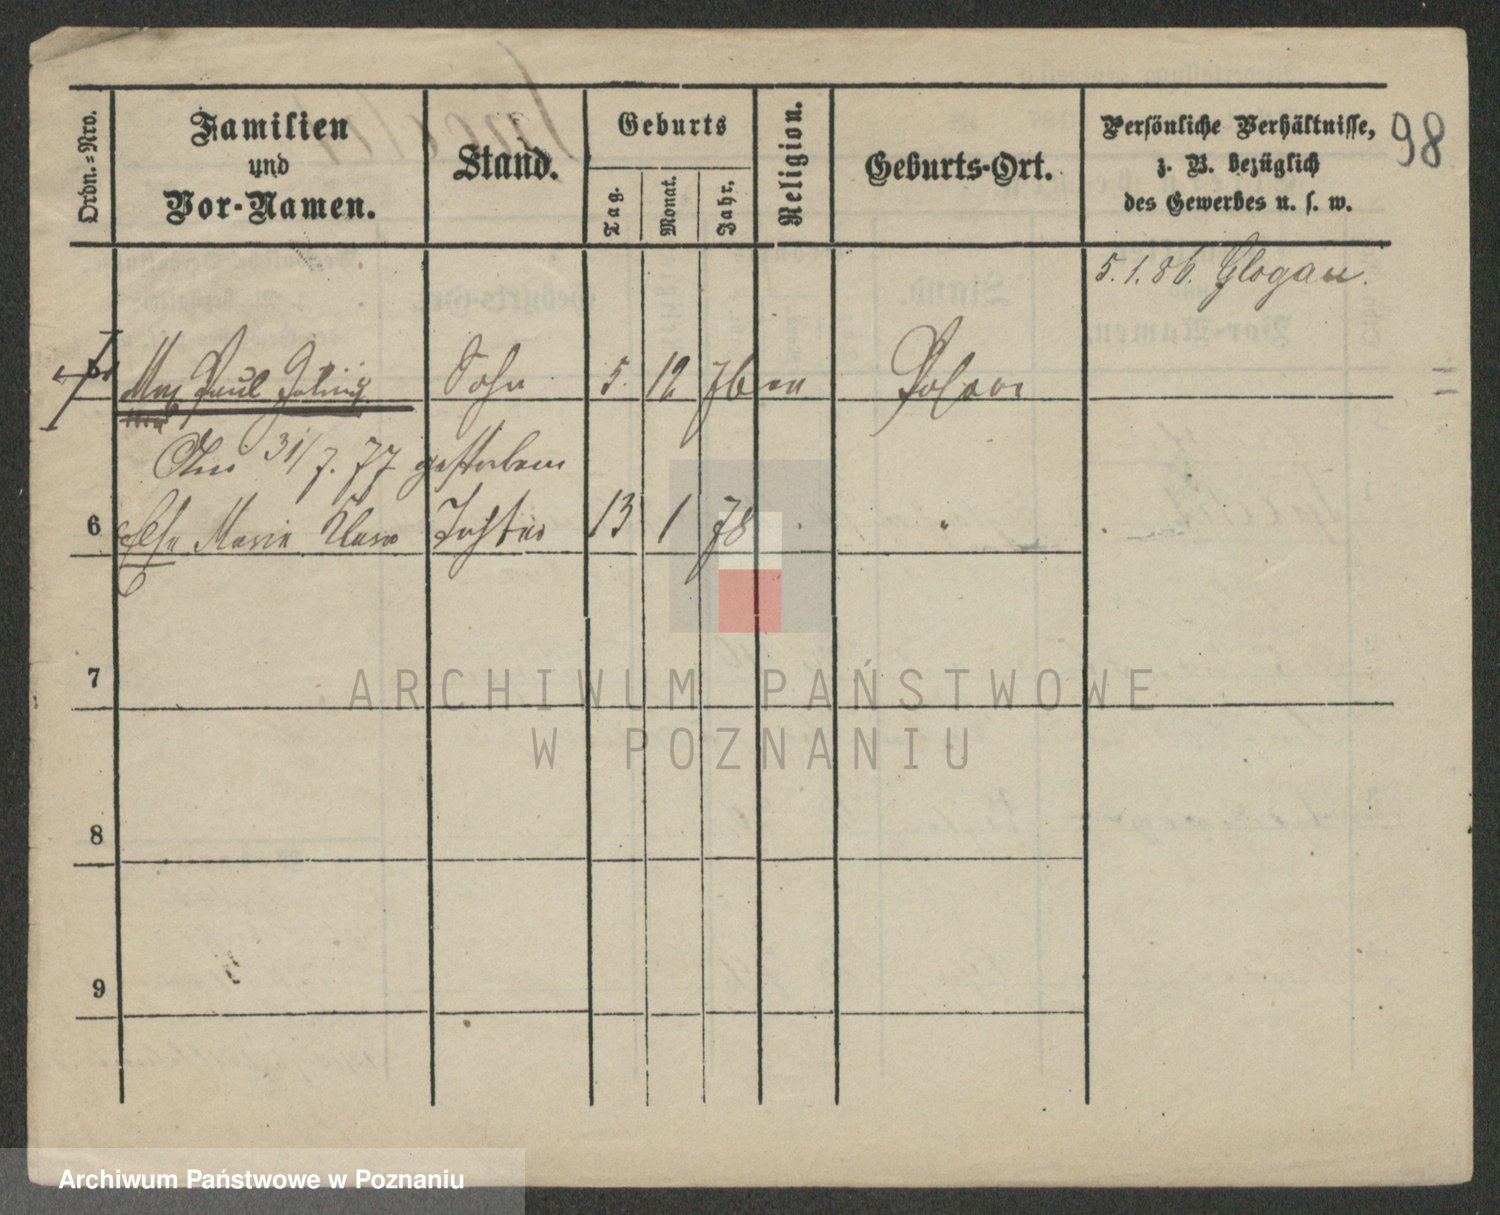 98
Ordn.=Nro.
Familien
und
Vor-Namen.
Stand.
Geburts
Tag.
Monat.
Jahr.
Religion.
Geburts-Ort.
Persönliche Verhältnisse,
z. B. bezüglich
des Gewerbes u. s. w.
5.1.86. Glogau.
5 Max Paul Sohn 5. 12 76 ev Posen
31/7. 77 gestorben
6 Marie Tochter 13 1 78 "
7
8
9
ARCHIWUM PAŃSTWOWE
W POZNANIU
Archiwum Państwowe w Poznaniu